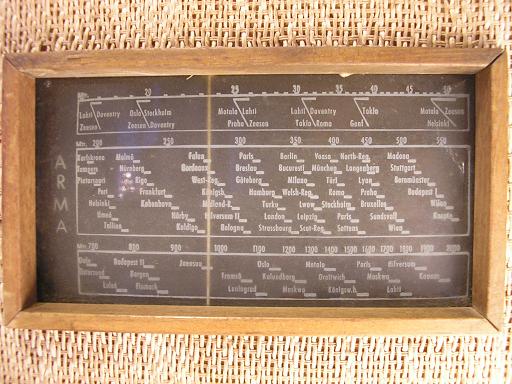 Mtr. 20 25 30 35 40 45 50
Lahti Daventry Oslo Stockholm Motala Lahti Lahti Daventry Tokio Motala
Zeesen Zeesen Daventry Praha Zeesen Tokio Roma Genf Helsinki
ARMA
Mtr. 200 250 300 350 400 450 500 550
Karlskrona Malmö Falun Paris Berlin Vossa North-Reg. Madona Sundsvall
Tampere Nürnberg Bordeaux Breslau Bucuresti München Langenberg Stuttgart
Pietarsaari Riga West-Reg. Göteborg Milano Türi Lyon Beromünster
Pori Frankfurt Königsb. Hamburg Welsh-Reg. Roma Praha Budapest I
Helsinki Kobenhavn Midland-R. Turku Lwow Stockholm Bruxelles Wilno
Umeå Hörby Hilversum II London Leipzig Paris Sundsvall Kuopio
Tallinn Kuldiga Bologna Strassbourg Scot-Reg. Sottens Wien
Mtr. 700 800 900 1000 1100 1200 1300 1400 1500 1600 1700 1800 1900 2000
Oulu Budapest II Janossu Oslo Motala Paris Hilversum
Östersund Bergen Tromsö Kalundborg Droitwich Moskwa Kaunas
Luleå Finmark Leningrad Moskwa Königsw.h. Lahti